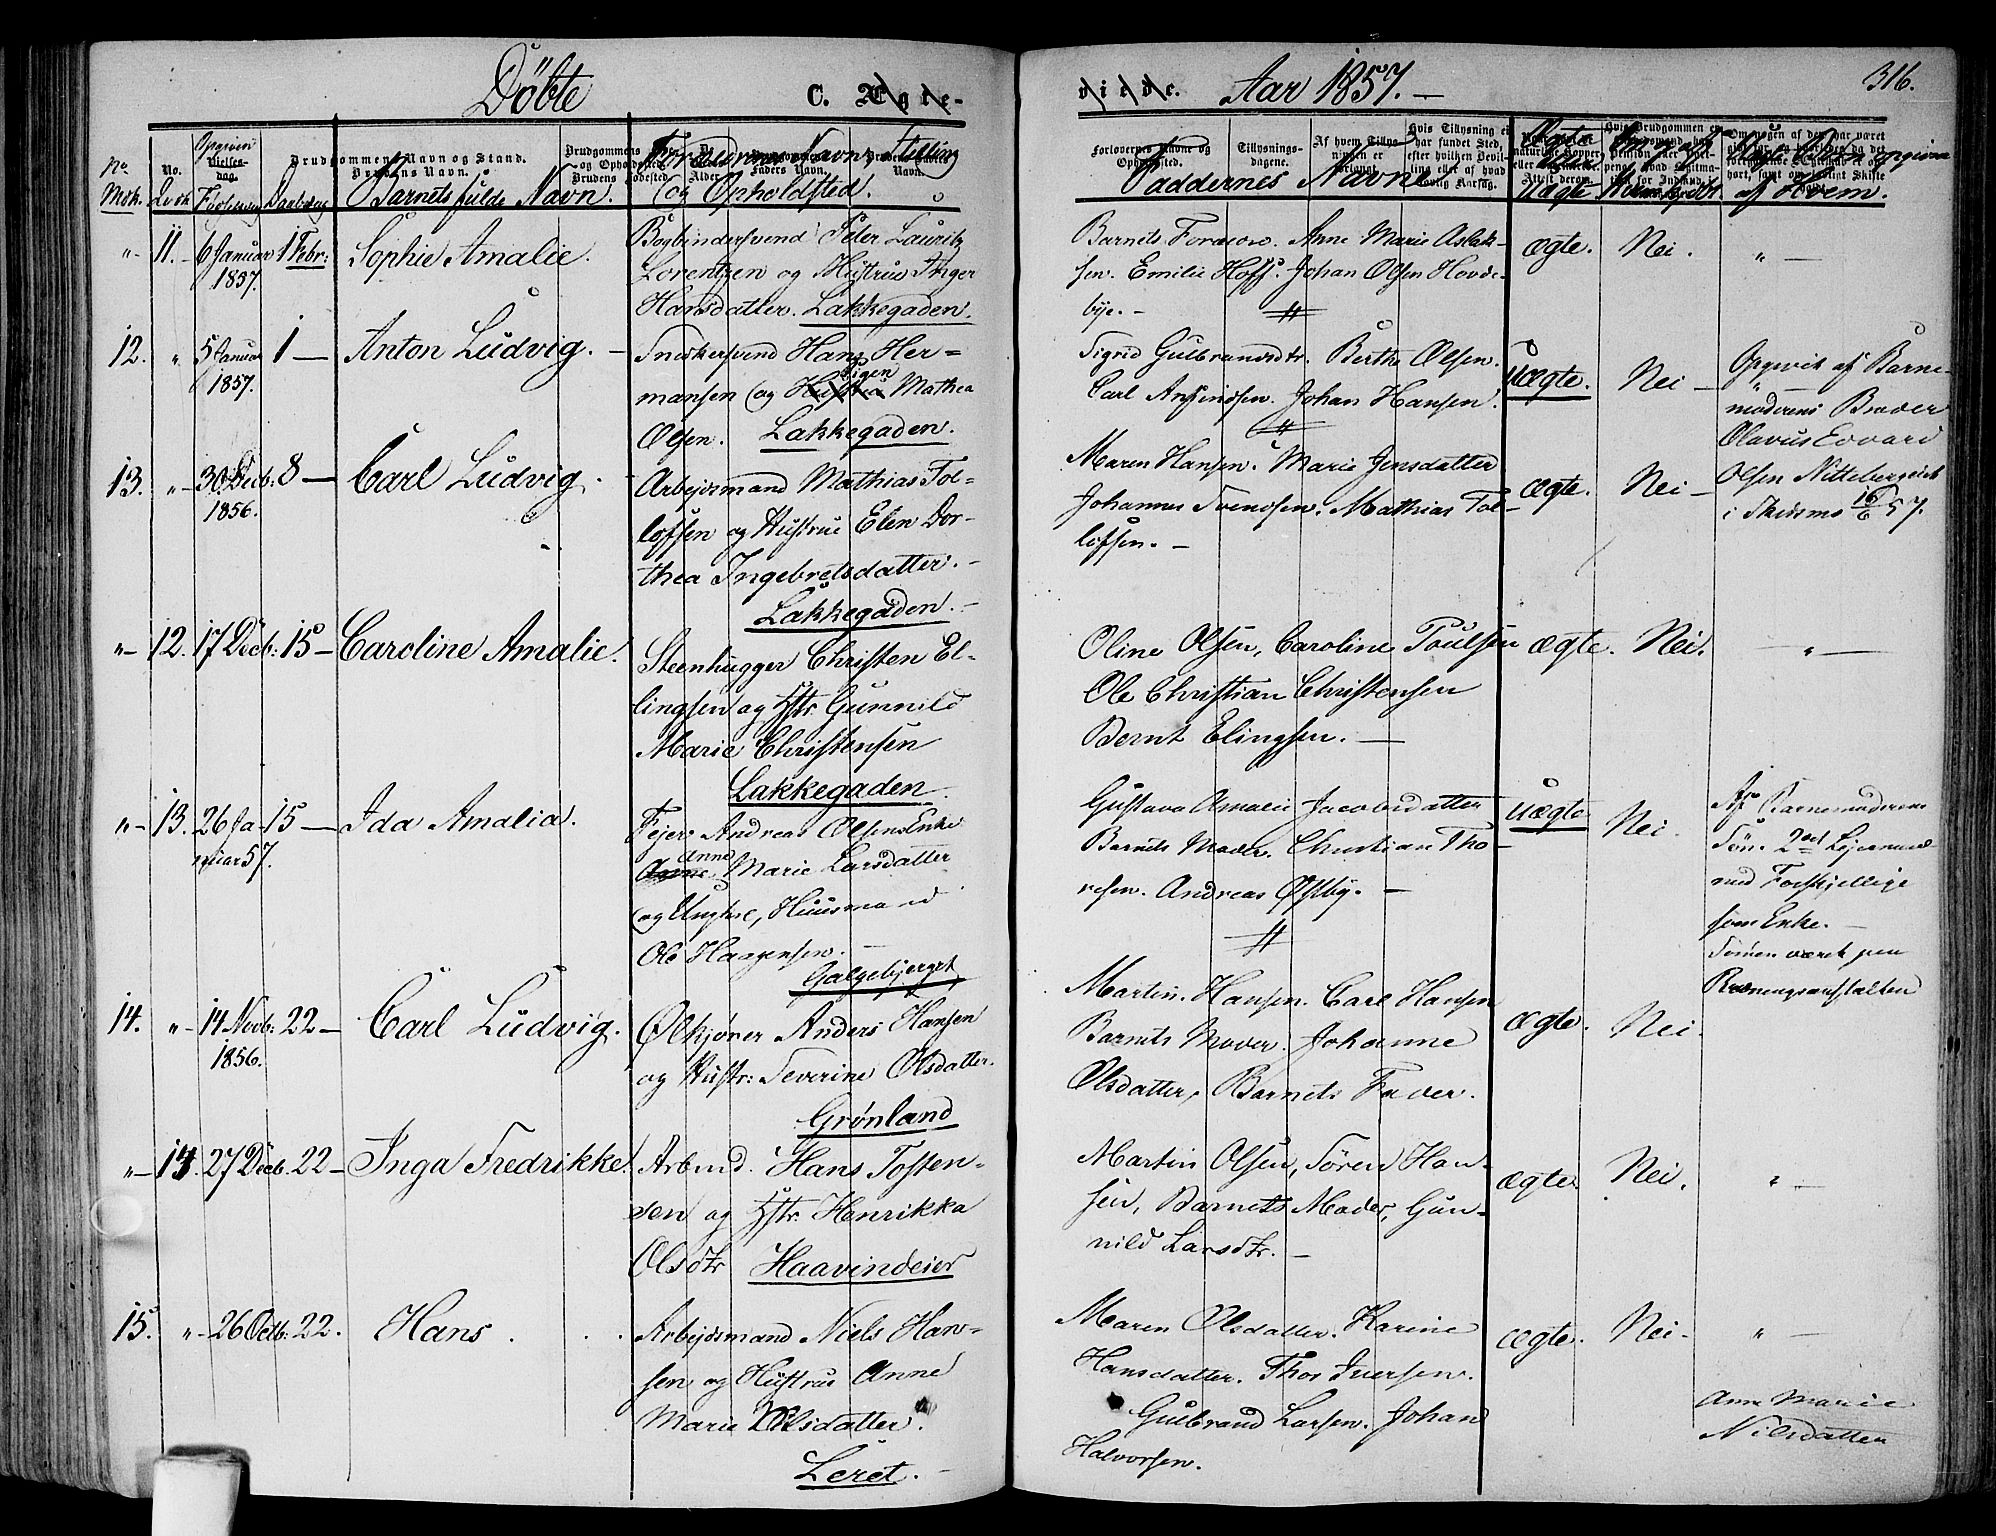 Döbte C. Ægte- viede. Aar 1857. — 316.
No. Mdk. No. Qvdk. Opgiven Vielses-dag. Födsesdag Daabsdag
Brudgommens Navn og Stand. Brudens Navn.
Barnets fulde Navn.
Forældrenes Navn, Stilling
og Opholdsted.
Faddernes Navn
Ægte eller Uægte
af Hvem.
„ 11. – 6 Januar 1 Febr: Sophie Amalie.
1857.
Bogbindersvend Peter Lauritz
Lorentzen og Hustrue Inger
Hansdatter. Lakkegaden.
Barnets Forældre. Anne Marie Aslak-
sen. Emilie Hoff. Johan Olsen Hovde-
bye. –
ægte. Nei. „ —
12. „ 5 Januar 1 — Anton Ludvig. –
1857.
Snedkersvend Hans Her=
mansen og Hustrue Pigen Mathea
Olsen. Lakkegaden.
Sigrid Gulbrandsdtr. Berthe Olsen.
Carl Amundsen. Johan Hansen.
uægte. Nei —
Opgivet af Barne-
moderens Broder
Olavus Edvard
Olsen Nitteberg
i Skedsmo 16/6 57.
13. „ – 30 Decb: 8 — Carl Ludvig.
1856.
Arbejdsmand Mathias Tol-
lofsen og Hustrue Elen Dor-
thea Ingebretsdatter. –
Lakkegaden. –
Maren Hansen. Marie Jensdatter
Johannes Svendsen. Mathias Tol-
lofsen. –
ægte. Nei –
„ – 12. 17 Decb: 15 – Caroline Amalie.
Steenhugger Christen El-
lingsen og Hstr. Gunnild
Marie Christensen
Lakkegaden.
Oline Olsen, Caroline Poulsen
Ole Christian Christensen
Bernt Elingsen. —
ægte. Nei. — „ —
„ – 13. 26 Ja- 15 — Ida Amalia.
nuar 57.
Fejer Andreas Olsens Enke
Anne Marie Larsdatter
og Ungkr, Huusmand
Ole Haagensen. –
Galgebjerget
Gustava Amalie Jacobsdatter
Barnets Moder. Christian Tho-
resen. Andreas Østby. –
uægte Nei.
Af Barnemoderens
Søn. 2det Lejermaal
med Forskjellige
som Enke. –
Sønnen været paa
Redningsanstalten
14. „ – 14 Novb: 22 – Carl Ludvig.
1856.
Ølkjører Anders Hansen
og Hustr: Severine Olsdatter.
Grønland
Martin Hansen. Carl Hansen
Barnets Moder. Johanne
Olsdatter, Barnets Fader.
ægte. Nei.
„ – 14. 27 Decb. 22 – Inga Fredrikke.
Arbmd. Hans Tosten-
sen og Hstr. Henrikka
Olsdtr Haavindeier
Martin Olsen, Sören Han-
sen, Barnets Moder, Gun-
nild Larsdtr. –
ægte. Nei. „ –
15. „ – 26 Octb: 22. Hans . . .
Arbejdsmand Niels Han-
sen og Hustrue Anne
Marie Nilsdatter.
Leret. –
Maren Olsdatter. Karine
Hansdatter. Thos Iversen.
Gulbrand Larsen. Johan
Halvorsen.
ægte. Nei. „ —
Anne Marie
Nilsdatter